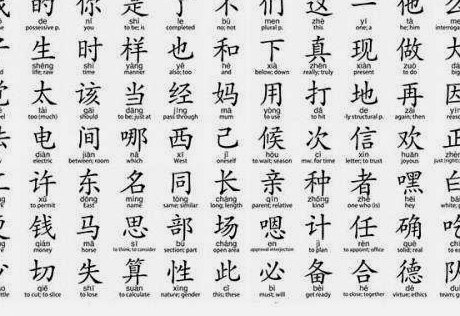 的 你 是 了 不 们 这 一 他 么
de nǐ shì le bù men zhè yī tā me
possessive p. you to be; is completed no; not plural p. this one; a he; him
生 时 样 也 和 下 真 现 做 大
shēng shí yàng yě hé xià zhēn xiàn zuò dà
life; raw time manner also; too and below; down really; truly present to do big
太 该 当 经 妈 用 打 地 再 因
tài gāi dāng jīng mā yòng dǎ de zài yīn
too (much) should to be; just at pass through mum to use to hit -ly structural p. again; then
电 间 哪 西 己 候 次 信 欢 正
diàn jiān nǎ xī jǐ hòu cì xìn huān
electric between; room which West oneself to wait; season mv. for time letter; to trust joyous
许 东 名 同 长 亲 种 者 嘿 白
xǔ dōng míng tóng cháng qīn zhǒng zhě hēi
to permit East name same; similar long; length parent; relative kind one who (is) hey
钱 马 思 部 场 嗯 计 任 确 吃
qián mǎ sī bù chǎng en jì rèn què
money horse to think; to consider section; part open area approval interjection to plan to appoint; office solid; real
切 失 算 性 此 必 备 合 德 队
qiē shī suàn xìng cǐ bì bèi hé dé
to cut; to slice to lose to calculate nature; gender this; these must; will get ready to close; together virtue; ethics